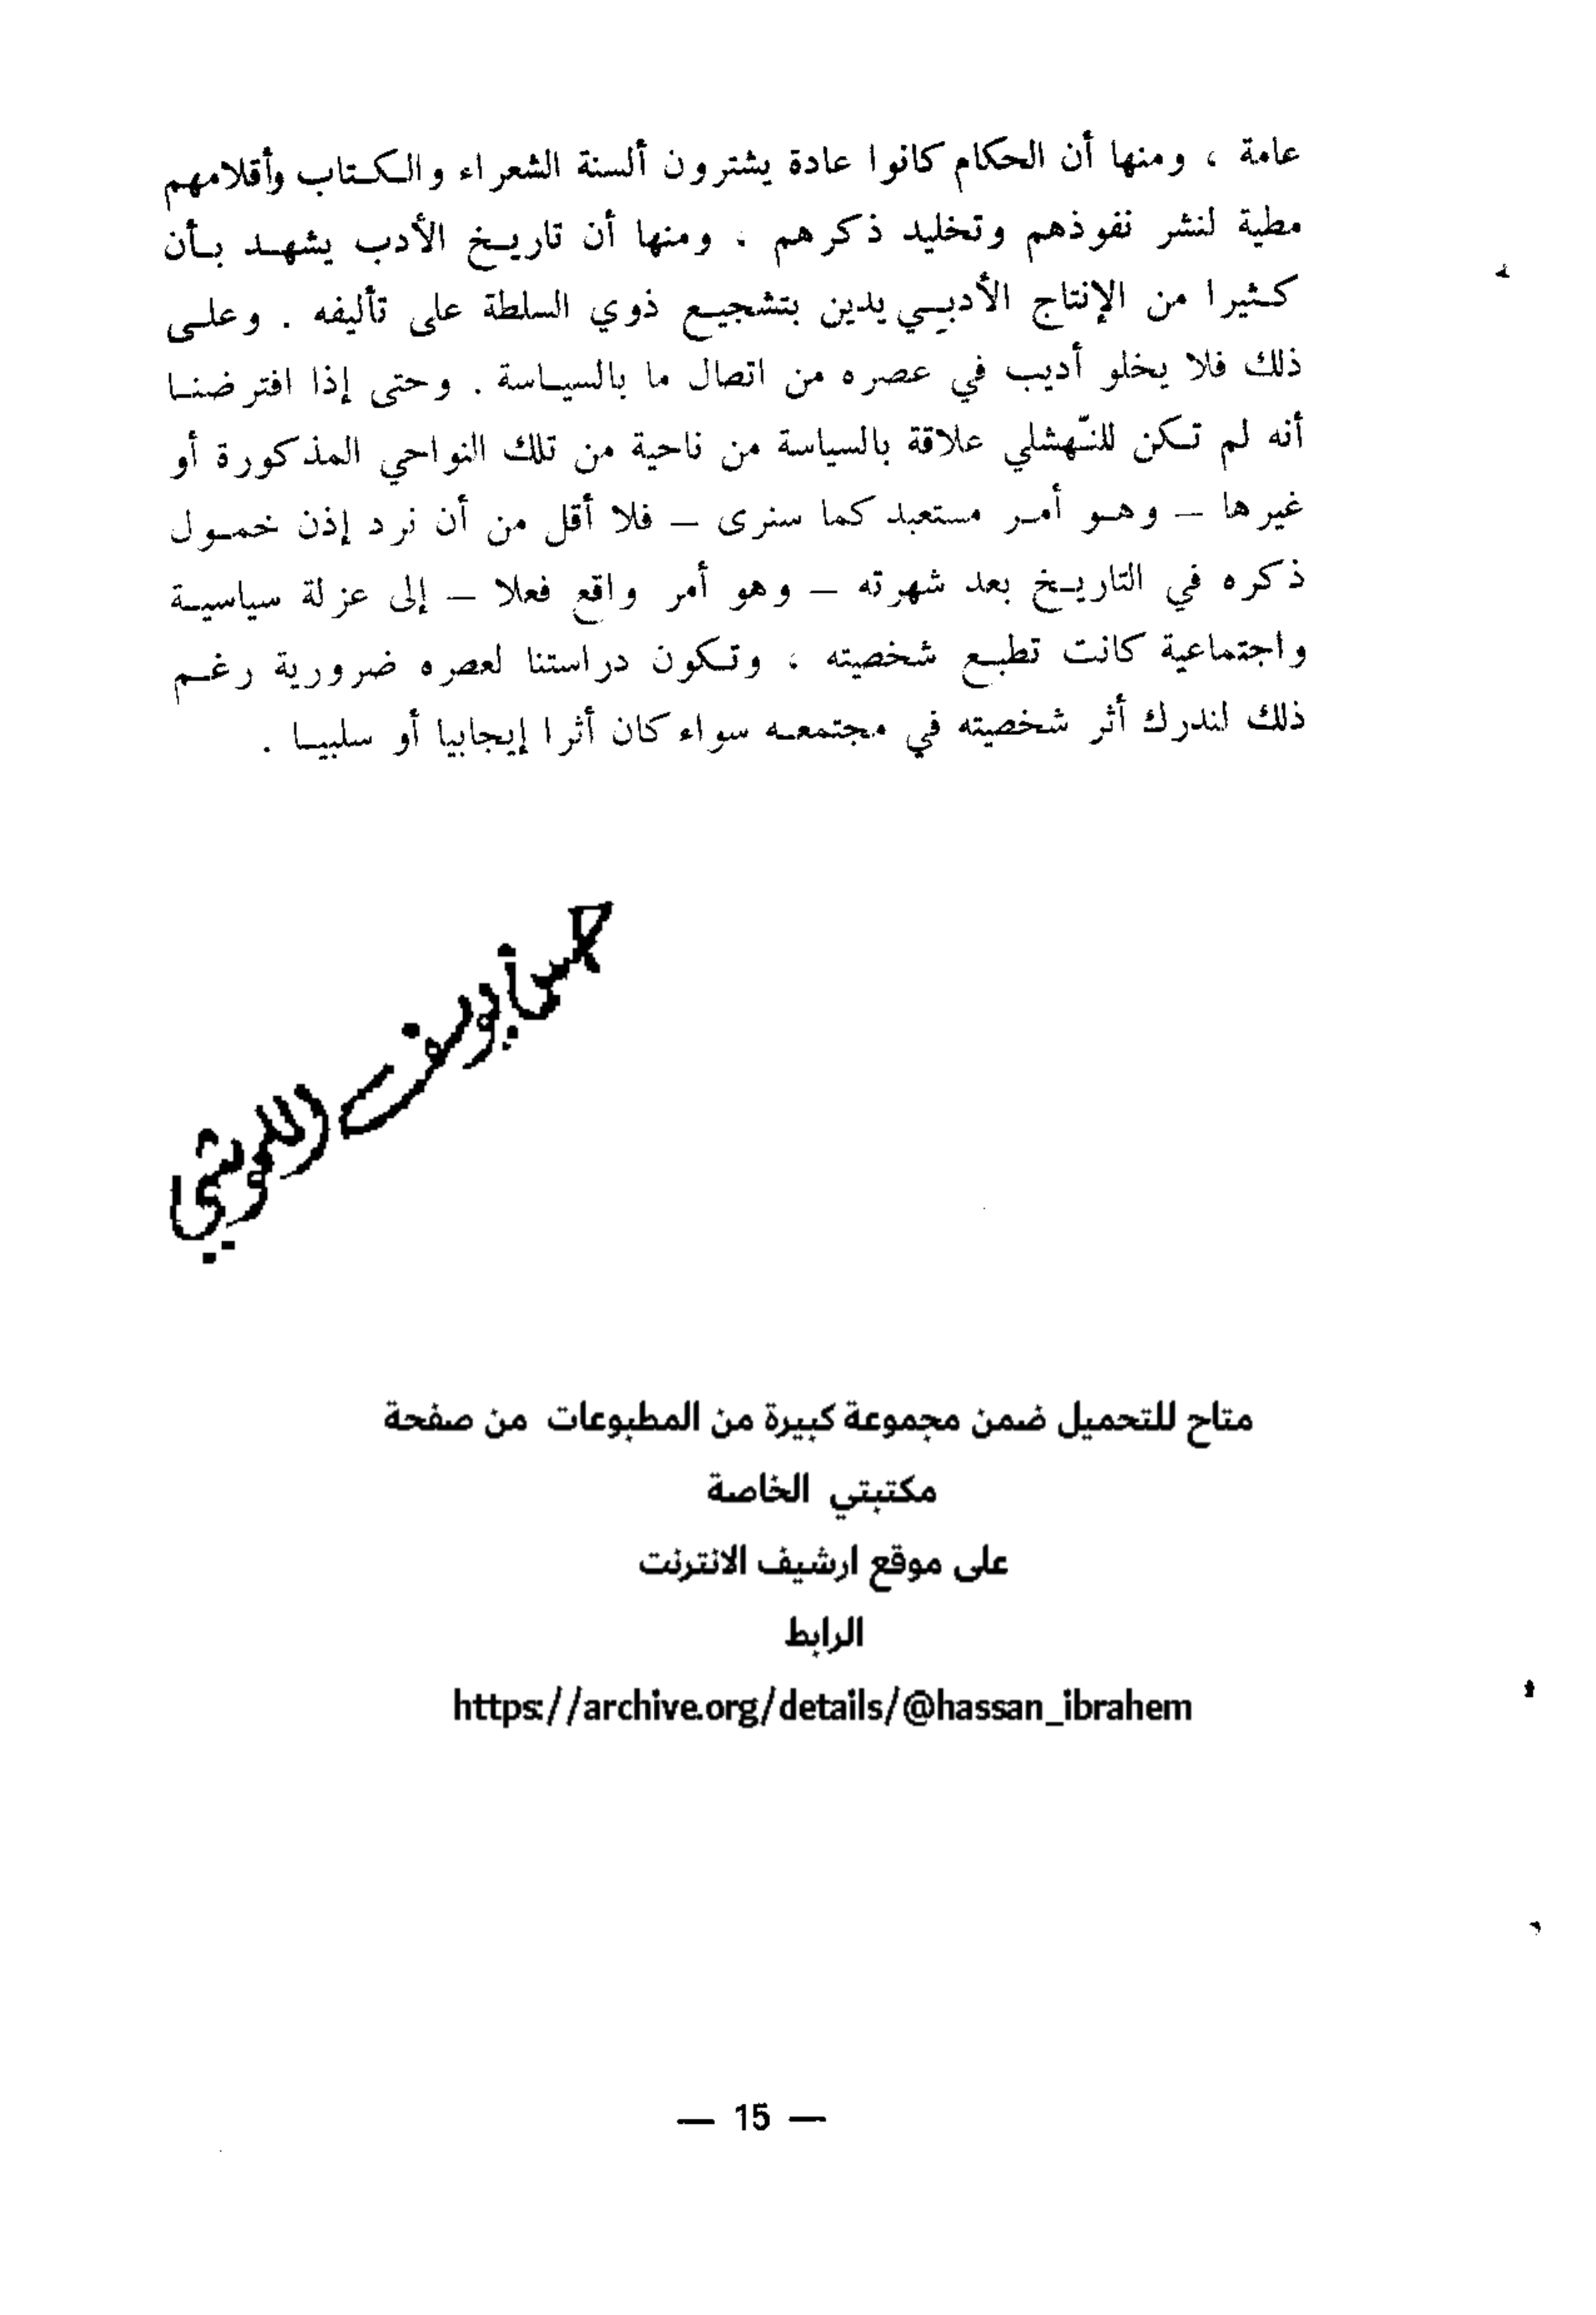 عامة ، ومنها أن الحكام كانوا عادة يشترون ألسنة الشعراء والكتاب وأقلامهم
مطية لنشر نفوذهم وتخليد ذكرهم . ومنها أن تاريخ الأدب يشهد بأن
كثيرا من الإنتاج الأدبي يدين بتشجيع ذوي السلطة على تأليفه . وعلى
ذلك فلا يخلو أديب في عصره من اتصال ما بالسياسة . وحتى إذا افترضنا
أنه لم تكن للنّهشلي علاقة بالسياسة من ناحية من تلك النواحي المذكورة أو
غيرها — وهو أمر مستعبد كما سنرى — فلا أقل من أن نرد إذن خمول
ذكره في التاريخ بعد شهرته — وهو أمر واقع فعلا — إلى عزلة سياسية
واجتماعية كانت تطبع شخصيته ، وتكون دراستنا لعصره ضرورية رغم
ذلك لندرك أثر شخصيته في مجتمعه سواء كان أثرا إيجابيا أو سلبيا .
متاح للتحميل ضمن مجموعة كبيرة من المطبوعات من صفحة
مكتبتي الخاصة
على موقع ارشيف الانترنت
الرابط
https://archive.org/details/@hassan_ibrahem
— 15 —